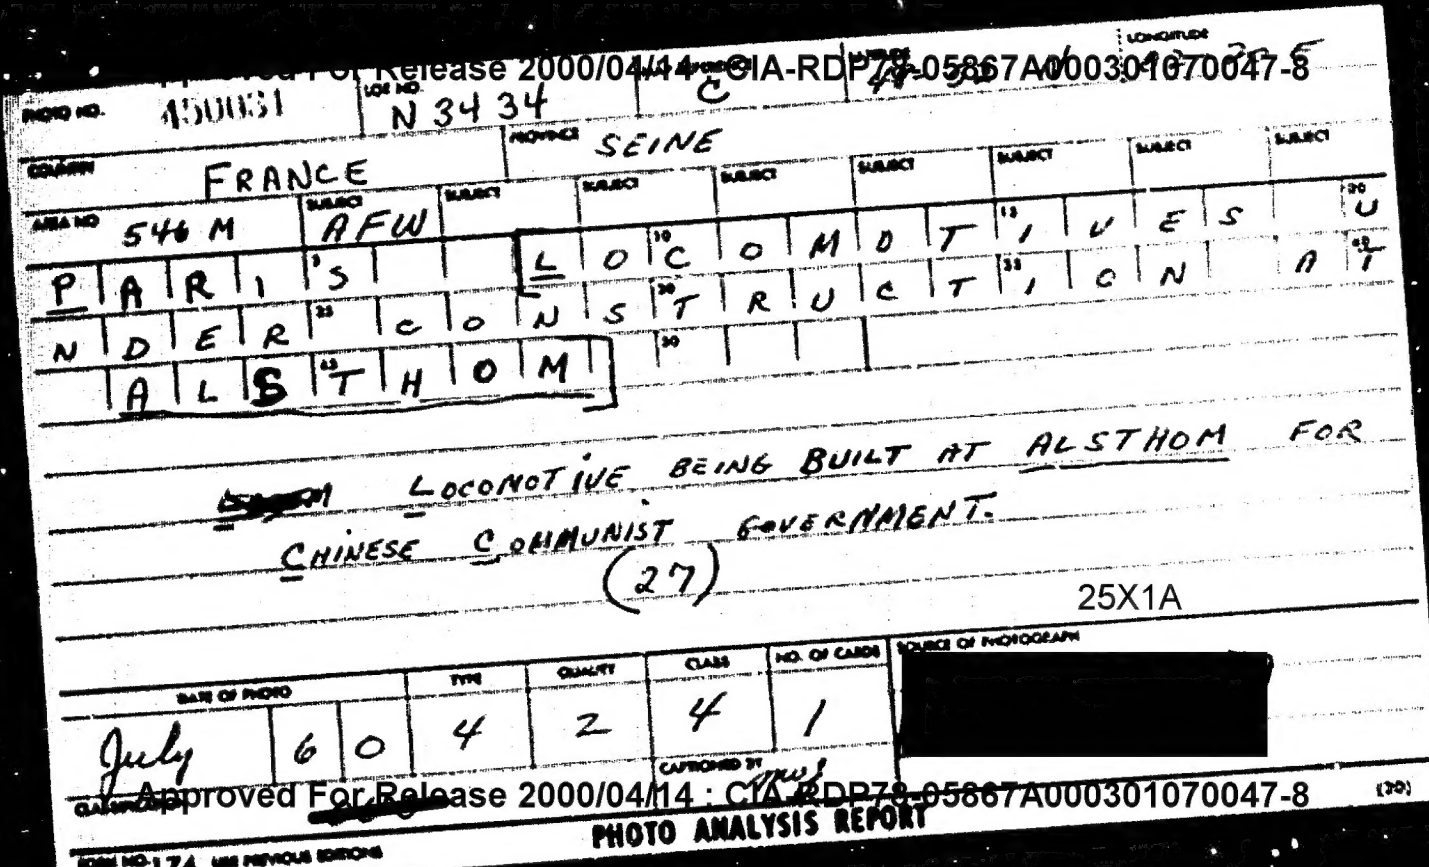 LONGITUDE
Approved For Release 2000/04/14 : CIA-RDP78-05867A000301070047-8
PHOTO NO. 450031 LOC NO. N 3434 C
COUNTRY FRANCE PROVINCE SEINE
AREA NO 546 M SUBJECT AFW SUBJECT SUBJECT SUBJECT SUBJECT SUBJECT SUBJECT SUBJECT
PARIS [LOCOMOTIVES U
NDER CONSTRUCTION AT
ALSTHOM]
LOCOMOTIVE BEING BUILT AT ALSTHOM FOR
CHINESE COMMUNIST GOVERNMENT.
(27)
25X1A
DATE OF PHOTO TYPE QUALITY CLASS NO. OF CARDS SOURCE OF PHOTOGRAPH
July 60 4 2 4 1
CAPTIONED BY
CLASSIFICATION
Approved For Release 2000/04/14 : CIA-RDP78-05867A000301070047-8
(30)
PHOTO ANALYSIS REPORT
FORM NO. 174 USE PREVIOUS EDITIONS